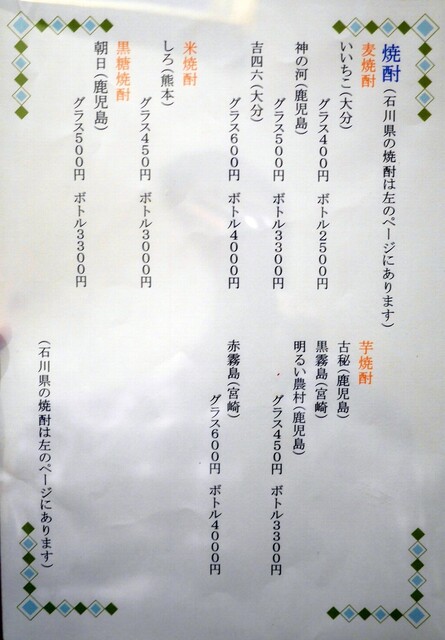 焼酎(石川県の焼酎は左のページにあります)
麦焼酎
いいちこ(大分)
グラス400円 ボトル2500円
神の河(鹿児島)
グラス500円 ボトル3300円
吉四六(大分)
グラス600円 ボトル4000円
米焼酎
しろ(熊本)
グラス450円 ボトル3000円
黒糖焼酎
朝日(鹿児島)
グラス500円 ボトル3300円
芋焼酎
古秘(鹿児島)
黒霧島(宮崎)
明るい農村(鹿児島)
グラス450円 ボトル3300円
赤霧島(宮崎)
グラス600円 ボトル4000円
(石川県の焼酎は左のページにあります)